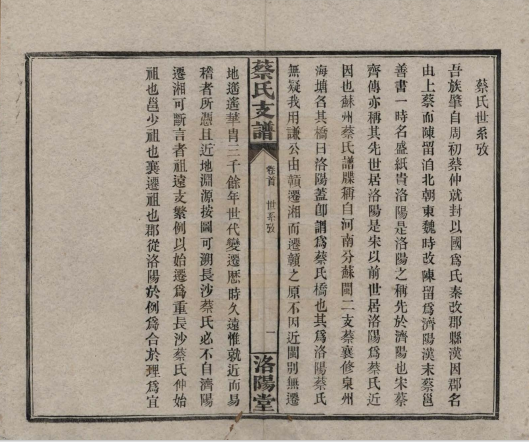 蔡氏世系攷
吾族肇自周初蔡仲就封以國爲氏秦改郡縣漢因郡名
由上蔡而陳留洎北朝東魏時改陳留爲濟陽漢末蔡邕
善書一時名盛紙貴洛陽是洛陽之稱先於濟陽也宋蔡
齊傳亦稱其先世居洛陽是宋以前世居洛陽爲蔡氏近
因也蘇州蔡氏譜牒稱自河南分蘇閩二支蔡襄修泉州
海塘名其橋曰洛陽蓋卽謂爲蔡氏橋也其爲洛陽蔡氏
無疑我用謙公由贛遷湘而遷贛之原不因近閩別無遷
蔡氏支譜
卷首
世系攷
一
洛陽堂
地遥遥華胄三千餘年世代變遷歷時久遠惟就近而易
稽者所憑且近地淵源按圖可溯長沙蔡氏必不自濟陽
遷湘可斷言者祖遠支繁例以始遷爲重長沙蔡氏仲始
祖也邕少祖也襄遷祖也郡從洛陽於例爲合於理爲宜